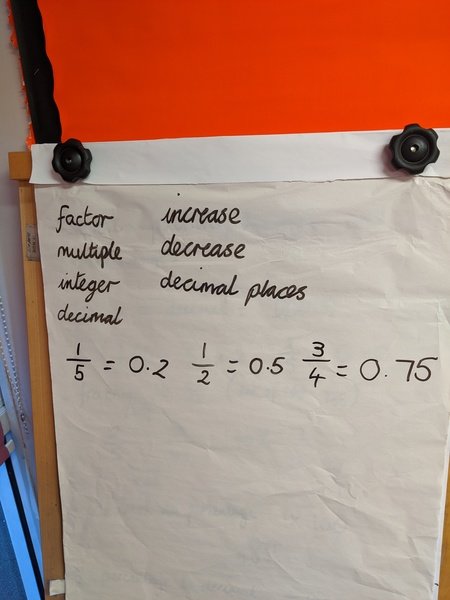 factor increase
multiple decrease
integer decimal places
decimal
1/5 = 0.2 1/2 = 0.5 3/4 = 0.75